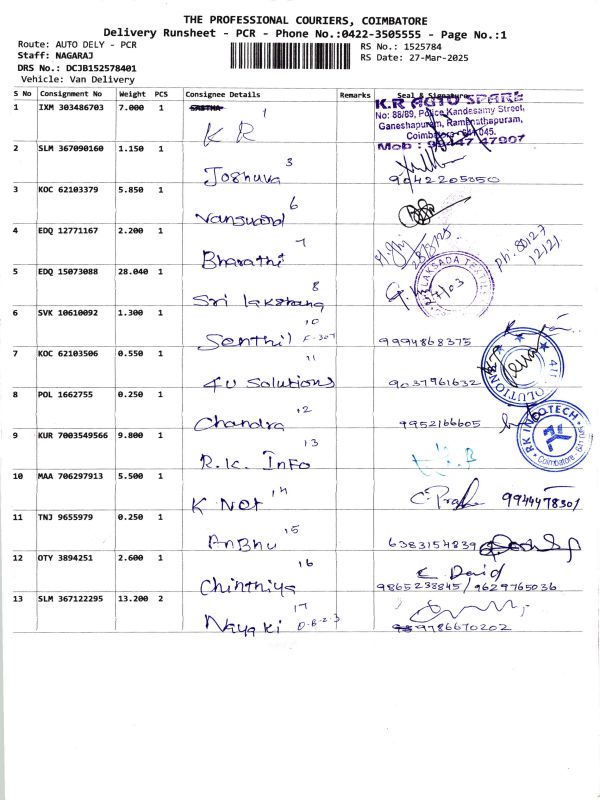 THE PROFESSIONAL COURIERS, COIMBATORE
Delivery Runsheet - PCR - Phone No.:0422-3505555 - Page No.:1
Route: AUTO DELY - PCR
RS No.: 1525784
Staff: NAGARAJ
RS Date: 27-Mar-2025
DRS No.: DCJB152578401
Vehicle: Van Delivery
S No Consignment No Weight PCS Consignee Details Remarks Seal & Signature
1 IXM 303486703 7.000 1
1
K R
K.R AUTO SPARE
No: 88/89, Police Kandasamy Street,
Ganeshapuram, Ramanathapuram,
Coimbatore - 641 045.
Mob : 99447 47907
2 SLM 367090160 1.150 1
3
Joshuva
9042205050
3 KOC 62103379 5.850 1
6
Vanguard
4 EDQ 12771167 2.200 1
7
Bharathi
28/8/25
Ph: 80127
12121
5 EDQ 15073088 28.040 1
8
Sri lakshana
LAKSADA TEXTILE
27/03
6 SVK 10610092 1.300 1
10
Senthil F-307
9994868375
7 KOC 62103506 0.550 1
11
4U Solutions
9037961632
4U SOLUTION
8 POL 1662755 0.250 1
12
Chandra
9952166605
9 KUR 7003549566 9.800 1
13
R.K. Info
RK INFOTECH
Coimbatore
10 MAA 706297913 5.500 1
14
K Not
9944478301
11 TNJ 9655979 0.250 1
15
AnBhu
6383154839
12 OTY 3894251 2.600 1
16
Chinthiya
C David
9865238845 / 9629765036
13 SLM 367122295 13.200 2
17
Nayaki D-B-2-3
9786670202